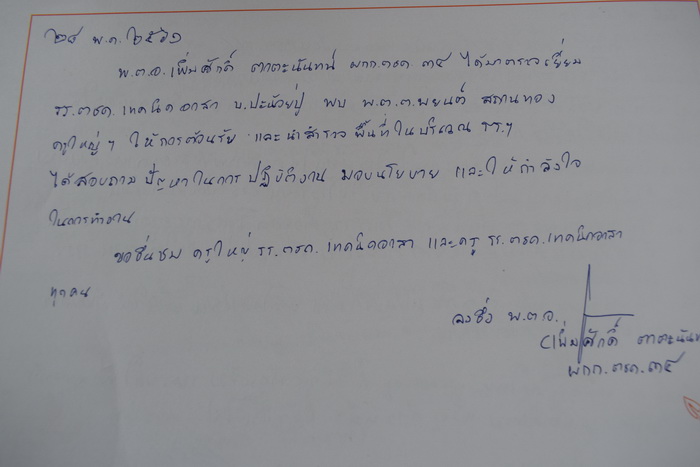 ๒๔ พ.ค. ๒๕๖๑
พ.ต.อ. เพิ่มศักดิ์ ตาตะนันทน์ ผกก.ตชด. ๓๔ ได้มาตรวจเยี่ยม
รร.ตชด.เทคนิคอาสา บ.ปะน้อยปู่ พบ พ.ต.ต.พยนต์ สถานทอง
ครูใหญ่ฯ ให้การต้อนรับ และนำสำรวจ พื้นที่ในบริเวณ รร.ฯ
ได้สอบถาม ปัญหาในการ ปฏิบัติงาน มอบนโยบาย และให้กำลังใจ
ในการทำงาน
ขอชื่นชม ครูใหญ่ รร.ตชด.เทคนิคอาสา และครู รร.ตชด.เทคนิคอาสา
ทุกคน
ลงชื่อ พ.ต.อ.
(เพิ่มศักดิ์
ผกก.ตชด.๓๔